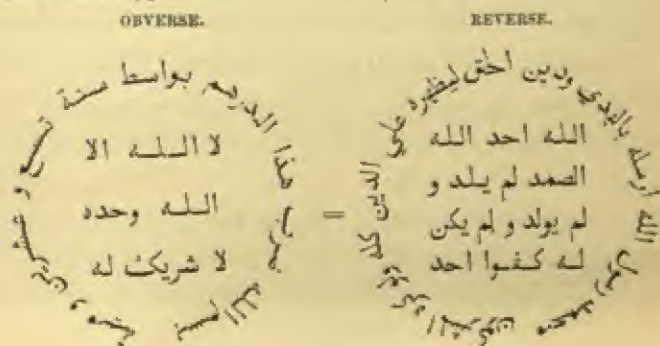 OBVERSE.
بسم الله ضرب هذا الدرهم بواسط سنة تسع و عشرين و مية
لا الـلـه الا
الـلـه وحده
لا شريك له
=
REVERSE.
محمد رسول الله ارسله بالهدي ودين الحق ليظهره علي الدين كله ولو كره المشركون
الله احد الله
الصمد لم يلد و
لم يولد و لم يكن
له كفوا احد